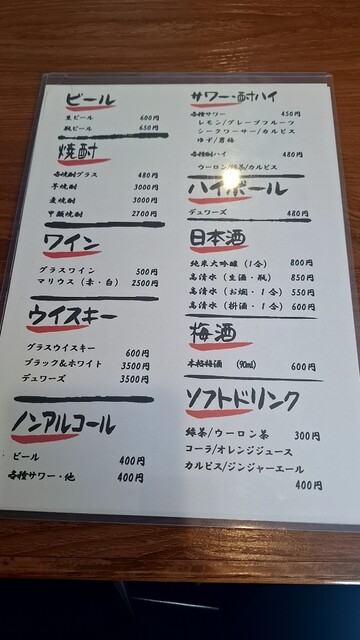 ビール
生ビール 600円
瓶ビール 650円
焼酎
各焼酎グラス 480円
芋焼酎 3000円
麦焼酎 3000円
甲類焼酎 2700円
ワイン
グラスワイン 500円
マリウス（赤・白） 2500円
ウイスキー
グラスウイスキー 600円
ブラック&ホワイト 3500円
デュワーズ 3500円
ノンアルコール
ビール 400円
各種サワー・他 400円
サワー・酎ハイ
各種サワー 450円
レモン/グレープフルーツ
シークワーサー/カルピス
ゆず/男梅
各種酎ハイ 480円
ウーロン/緑茶/カルピス
ハイボール
デュワーズ 480円
日本酒
純米大吟醸（1合） 800円
高清水（生酒・瓶） 850円
高清水（お燗・1合） 550円
高清水（枡酒・1合） 600円
梅酒
本格梅酒 （90ml） 600円
ソフトドリンク
緑茶/ウーロン茶 300円
コーラ/オレンジジュース
カルピス/ジンジャーエール
400円